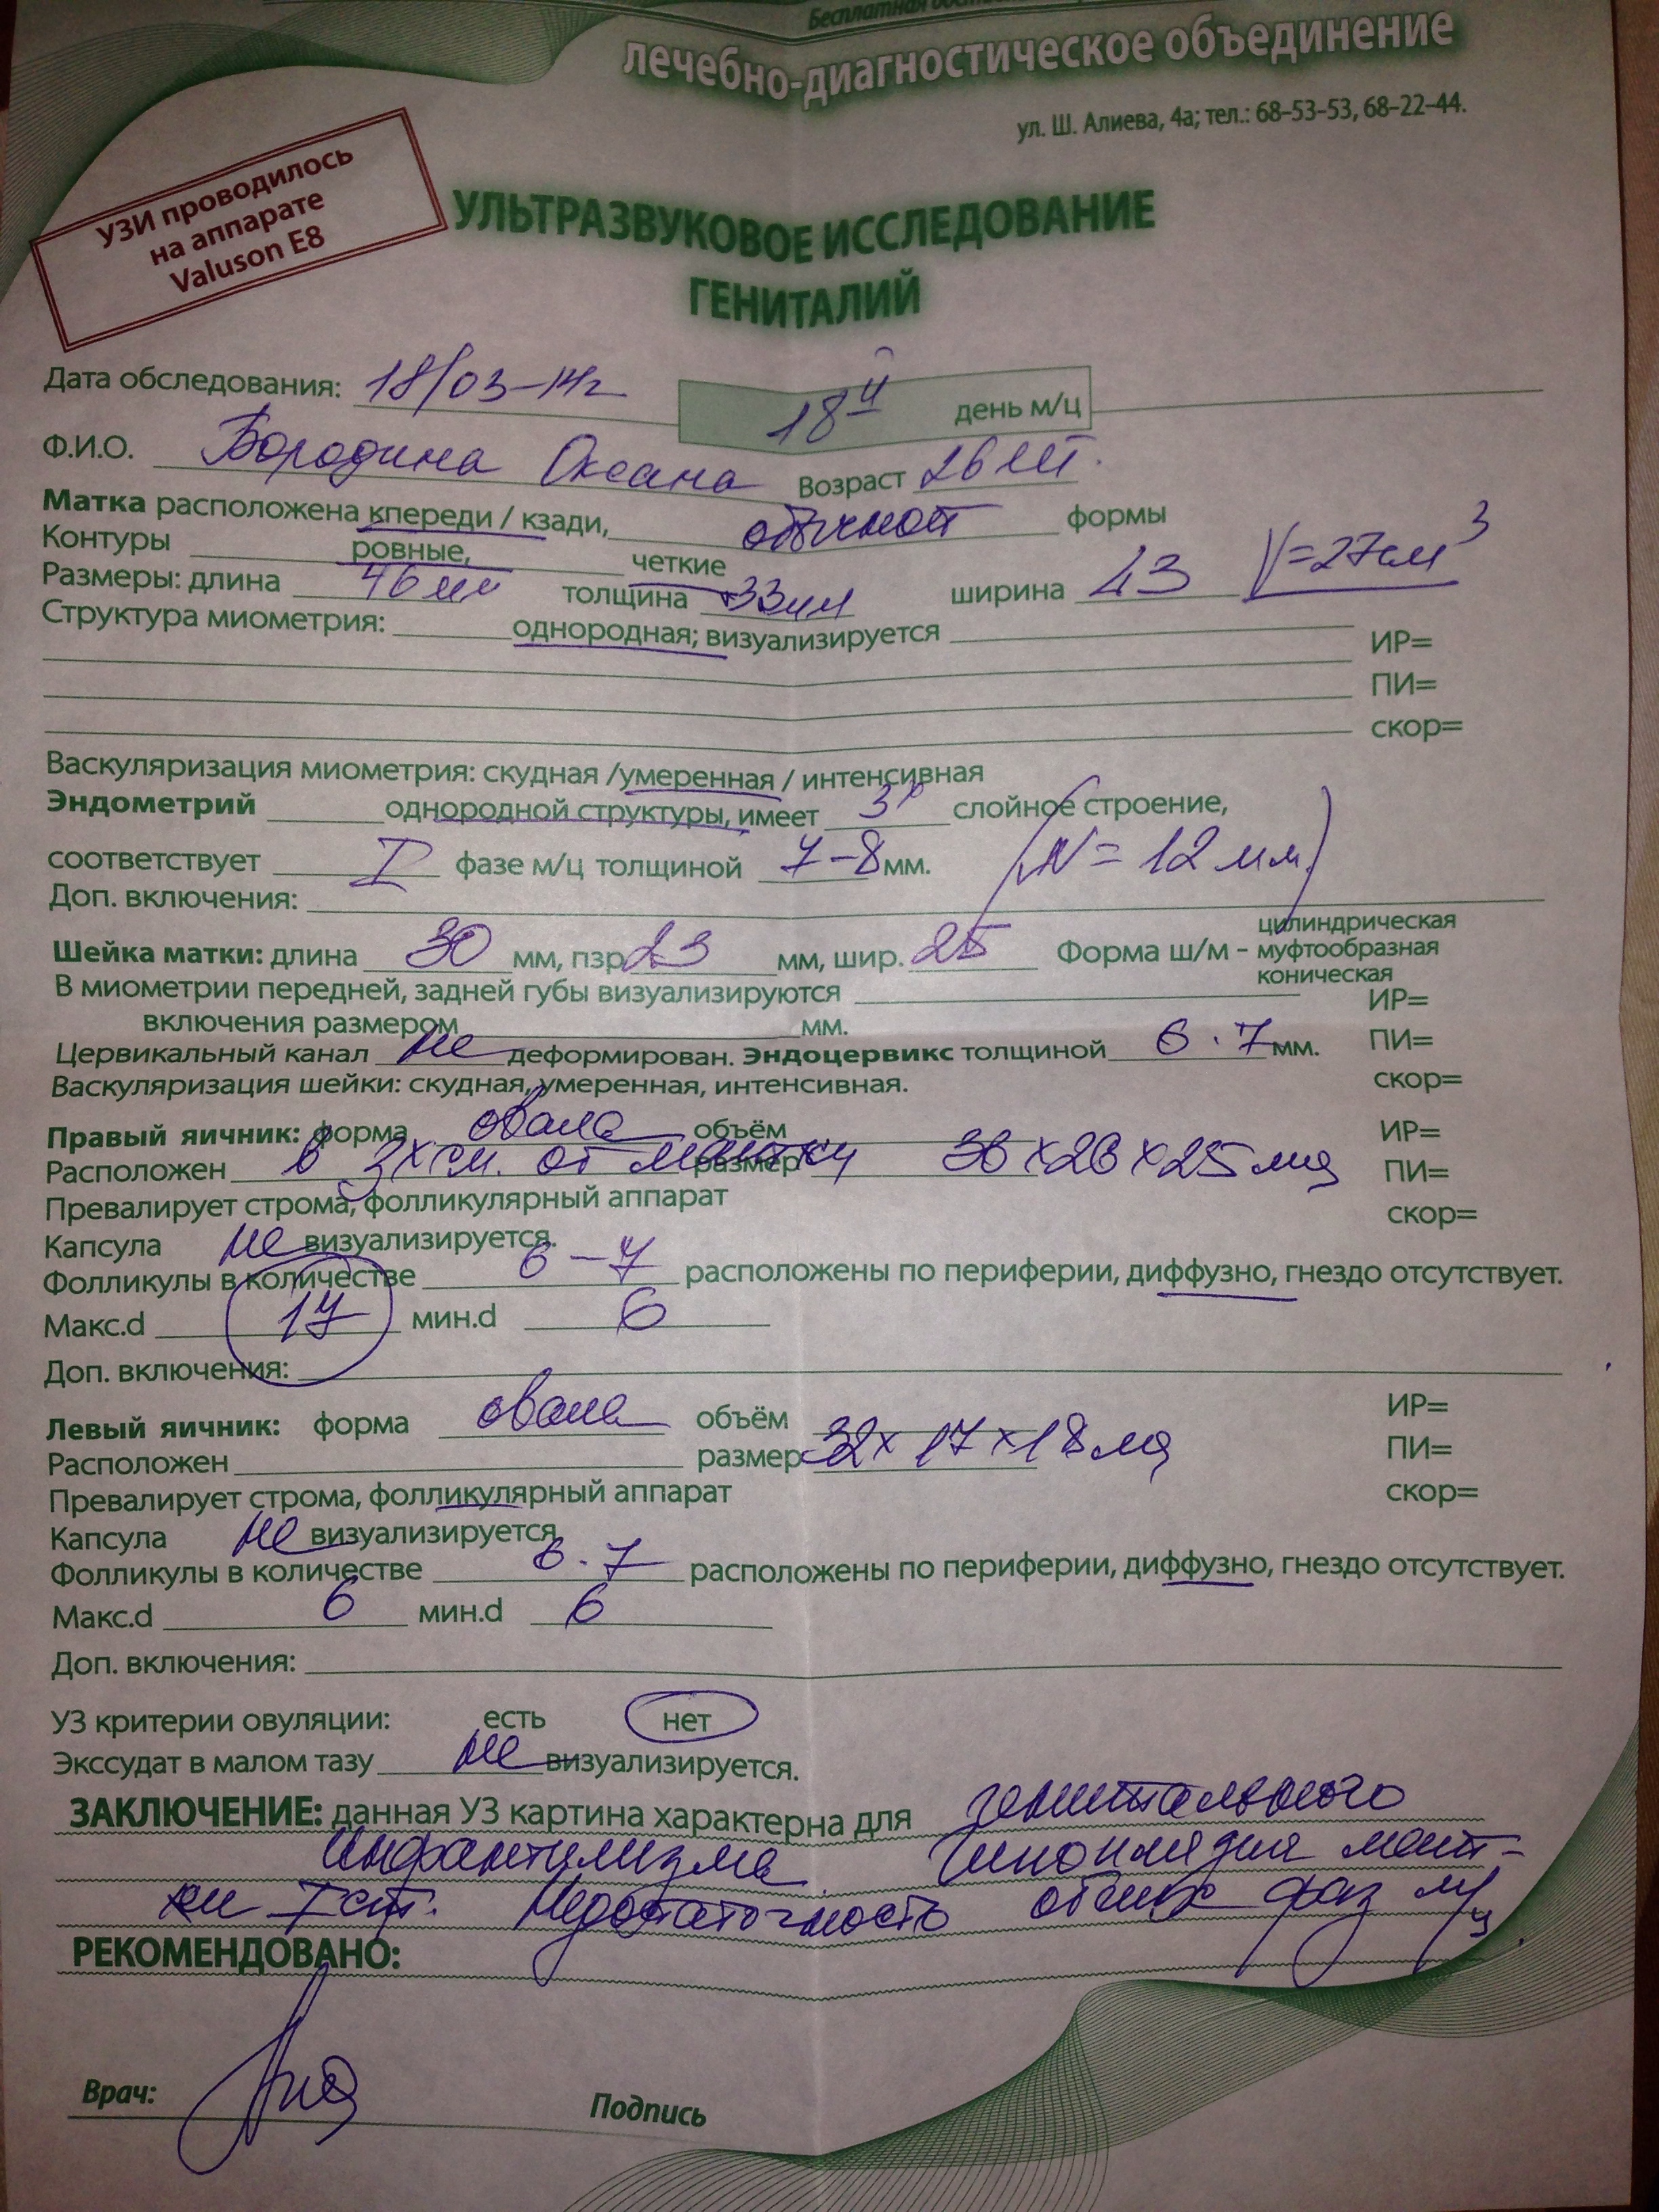 Бесплатная
лечебно-диагностическое объединение
ул. Ш. Алиева, 4а; тел.: 68-53-53, 68-22-44.
УЗИ проводилось
на аппарате
Valuson E8
УЛЬТРАЗВУКОВОЕ ИССЛЕДОВАНИЕ
ГЕНИТАЛИЙ
Дата обследования: 18/03-14г 18й день м/ц
Ф.И.О. Бородина Оксана Возраст 26 лет.
Матка расположена кпереди / кзади, обычной формы
Контуры ровные, четкие
Размеры: длина 46 мм толщина 33мм ширина 43 V=27см3
Структура миометрия: однородная; визуализируется
ИР=
ПИ=
скор=
Васкуляризация миометрия: скудная /умеренная / интенсивная
Эндометрий однородной структуры, имеет 3х слойное строение,
соответствует I фазе м/ц толщиной 7-8 мм. (N = 12 мм.)
Доп. включения:
Шейка матки: длина 30 мм, пзр 23 мм, шир. 25 Форма ш/м - цилиндрическая
муфтообразная
коническая
В миометрии передней, задней губы визуализируются
ИР=
включения размером мм.
Цервикальный канал не деформирован. Эндоцервикс толщиной 6.7 мм. ПИ=
Васкуляризация шейки: скудная, умеренная, интенсивная. скор=
Правый яичник: форма овала объём ИР=
Расположен в 3х см. от матки размер 36х26х25мм ПИ=
Превалирует строма, фолликулярный аппарат скор=
Капсула не визуализируется.
Фолликулы в количестве 6-7 расположены по периферии, диффузно, гнездо отсутствует.
Макс.d 17 мин.d 6
Доп. включения:
Левый яичник: форма овала объём ИР=
Расположен размер 32х17х18мм ПИ=
Превалирует строма, фолликулярный аппарат скор=
Капсула не визуализируется
Фолликулы в количестве 6.7 расположены по периферии, диффузно, гнездо отсутствует.
Макс.d 6 мин.d 6
Доп. включения:
УЗ критерии овуляции: есть нет
Экссудат в малом тазу не визуализируется.
ЗАКЛЮЧЕНИЕ: данная УЗ картина характерна для генитального
инфантилизма. Гипоплазия мат-
ки I ст. Недостаточность обеих фаз м/ц.
РЕКОМЕНДОВАНО:
Врач: Подпись